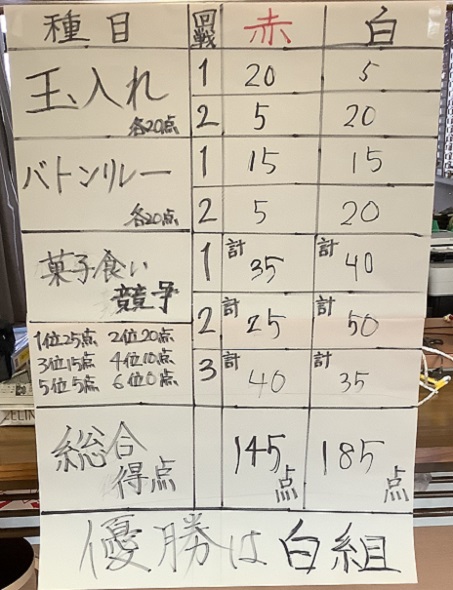 種目 回戦 赤 白
玉入れ 1 20 5
各20点 2 5 20
バトンリレー 1 15 15
各20点 2 5 20
菓子食い 1 計35 計40
競争 2 計25 計50
1位25点 2位20点
3位15点 4位10点 3 計40 計35
5位5点 6位0点
総合 145 185
得点 点 点
優勝は白組